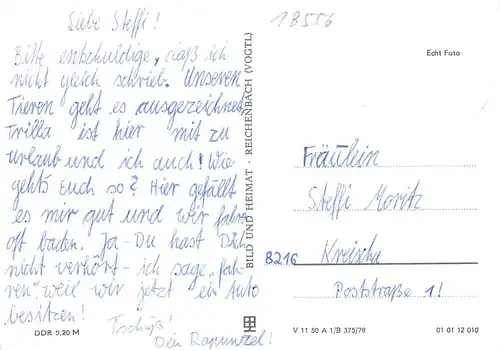 Liebe Steffi!
Bitte entschuldige, daß ich
nicht gleich schrieb. Unseren
Tieren geht es ausgezeichnet,
Trilla ist hier mit zu
Urlaub und ich auch! Wie
gehts Euch so? Hier gefällt
es mir gut und wir fahrn
oft baden. Ja - Du hast Dich
nicht verhört - ich sage „fah-
ren", weil wir jetzt ein Auto
besitzen!
Tschüß!
Dein Rapunzel!
DDR 0,20 M
BILD UND HEIMAT · REICHENBACH (VOGTL)
18556
Echt Foto
Fräulein
Steffi Moritz
8216 Kreischa
Poststraße 1!
V 11 50 A 1/B 375/78 01 01 12 010